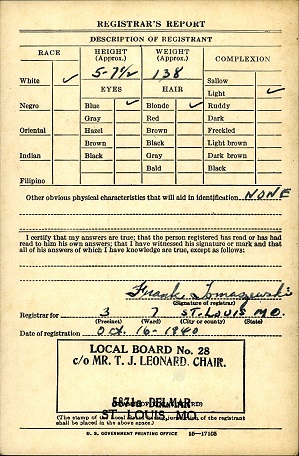 REGISTRAR'S REPORT
DESCRIPTION OF REGISTRANT
RACE HEIGHT (Approx.) WEIGHT (Approx.) COMPLEXION
5-7½ 138
White ✓ Sallow
EYES HAIR Light ✓
Negro Blue ✓ Blonde ✓ Ruddy
Gray Red Dark
Oriental Hazel Brown Freckled
Brown Black Light brown
Indian Black Gray Dark brown
Bald Black
Filipino
Other obvious physical characteristics that will aid in identification NONE
I certify that my answers are true; that the person registered has read or has had
read to him his own answers; that I have witnessed his signature or mark and that
all of his answers of which I have knowledge are true, except as follows:
Frank Tomaszewski
(Signature of registrar)
Registrar for 3 7 ST. LOUIS MO.
(Precinct) (Ward) (City or county) (State)
Date of registration Oct. 16-1940
LOCAL BOARD No. 28
c/o MR. T. J. LEONARD, CHAIR.
5871a DELMAR
ST. LOUIS, MO.
(The stamp of the Local Board of the registrant
shall be placed in the above space.)
U. S. GOVERNMENT PRINTING OFFICE 16—17105